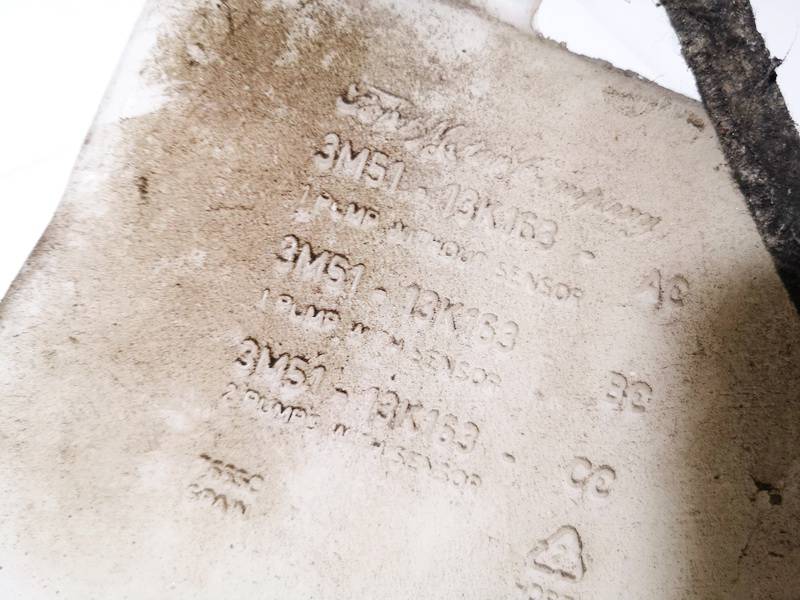 Ford Motor Company
3M51 - 13K163 - AC
1 PUMP WITHOUT SENSOR
3M51 - 13K163 - BC
1 PUMP WITH SENSOR
3M51 - 13K163 - CC
2 PUMPS WITH SENSOR
SPAIN